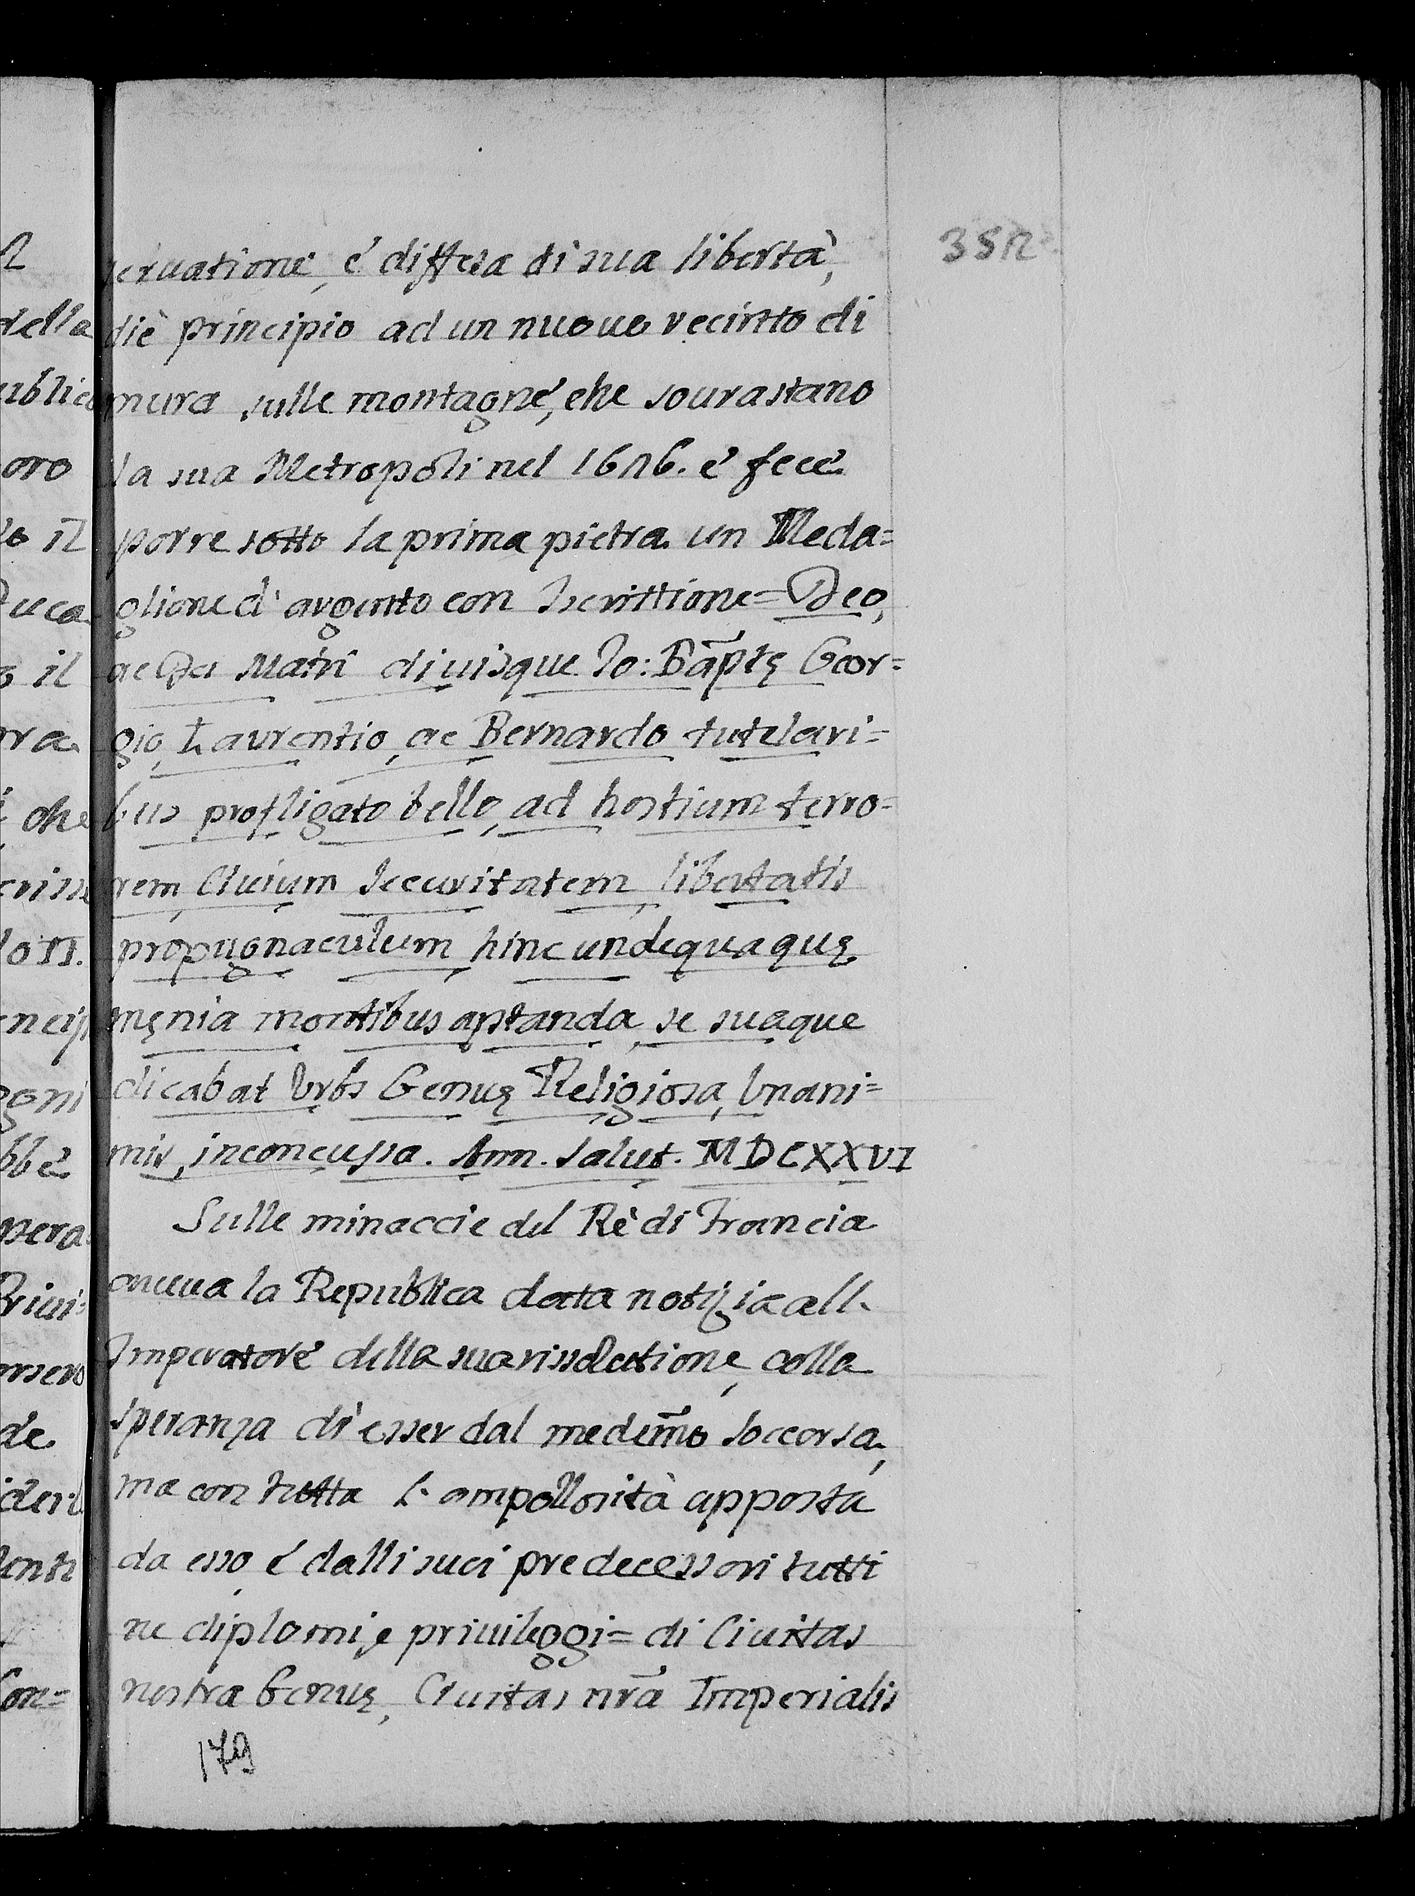 352
seruatione, é diffesa di sua libertà,
diè principio ad un nuouo recinto di
mura sulle montagné, che sourastano
la sua Metropoli nel 1626. é fece
porre sotto la prima pietra un Meda=
glione d' argento con Iscrittione= Deo,
ac Dei Matri diuisque Io: Bãptę Geor=
gio, Laurentio, ac Bernardo tutelari=
bus profligato bello, ad hostium terro=
rem, Ciuium securitatem, libertatis
propugnaculum hinc undequaquę
męnia montibus aptanda, se suaque
dicabat Vrbs Genuę Religiosa, Vnani=
mis, inconcussa. Ann. Salut. MDCXXVI
Sulle minaccie del Rè di Francia
aueua la Republica data notizia all'
Imperatoré della sua rissolutione, colla
speranza di esser dal medem̃o soccorsa,
ma con tutta l' ampollosità apposta
da esso é dalli suoi predecessori tutti
ne diplomi, e priuileggi= di Ciuitas
nostra Genuę, Ciuitas nrã Imperialis
179